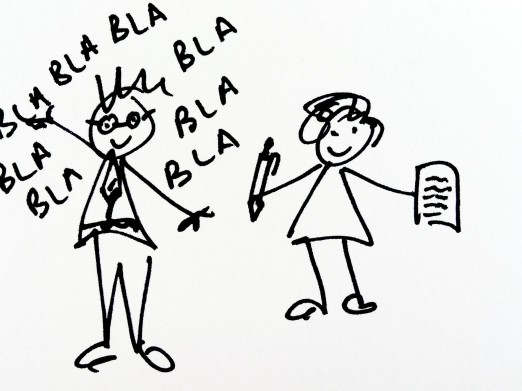 BLA BLA BLA BLA
BLA BLA
BLA BLA
BLA